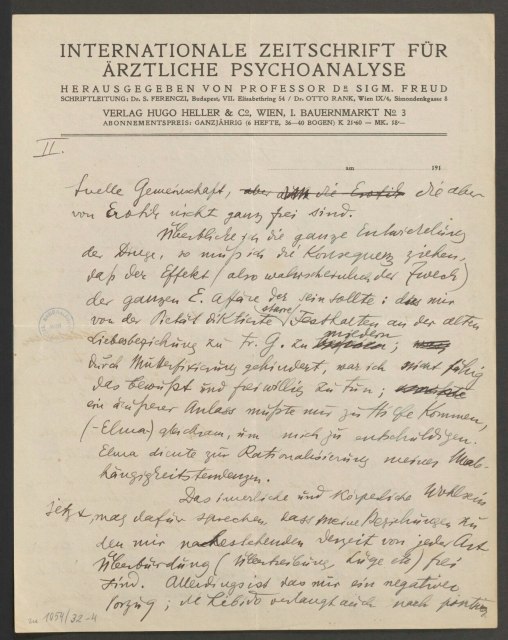 INTERNATIONALE ZEITSCHRIFT FÜR
ÄRZTLICHE PSYCHOANALYSE
HERAUSGEGEBEN VON PROFESSOR DR SIGM. FREUD
SCHRIFTLEITUNG: Dr. S. FERENCZI, Budapest, VII. Elisabethring 54 / Dr. OTTO RANK, Wien IX/4, Simondenkgasse 8
VERLAG HUGO HELLER & Co, WIEN, I. BAUERNMARKT No 3
ABONNEMENTSPREIS: GANZJÄHRIG (6 HEFTE, 36—40 BOGEN) K 21·60 — MK. 18·—
II.
am 191
tuelle Gemeinschaft, aber die Erotik die aber
von Erotik nicht ganz frei sind.
Überblicke ich die ganze Entwickelung
der Dinge, so muß ich die Konsequenz ziehen,
daß der Effekt (also wahrscheinlich der Zweck)
der ganzen E. Affäre der sein sollte: das mir
von der Pietät diktierte starre Festhalten an der alten
Liebesbeziehung zu Fr. G. zu mildern;
durch Mutterfixierung gehindert, war ich nicht fähig
das bewußt und freiwillig zu tun;
ein äußerer Anlass mußte mir zu Hilfe kommen,
(–Elma) gleichsam, um mich zu entschuldigen.
Elma diente zur Rationalisierung meines Unab-
hängigkeitstendenzen.
Das innerliche und körperliche Wohlsein
jetzt, mag dafür sprechen dass meine Beziehungen zu
den mir nachestehenden derzeit von jeder Art
Überbürdung (Übertreibung, Lüge etc) frei
sind. Allerdings ist das nur ein negativer
Vorzug; die Libido verlangt auch nach positiven
1054/32-4